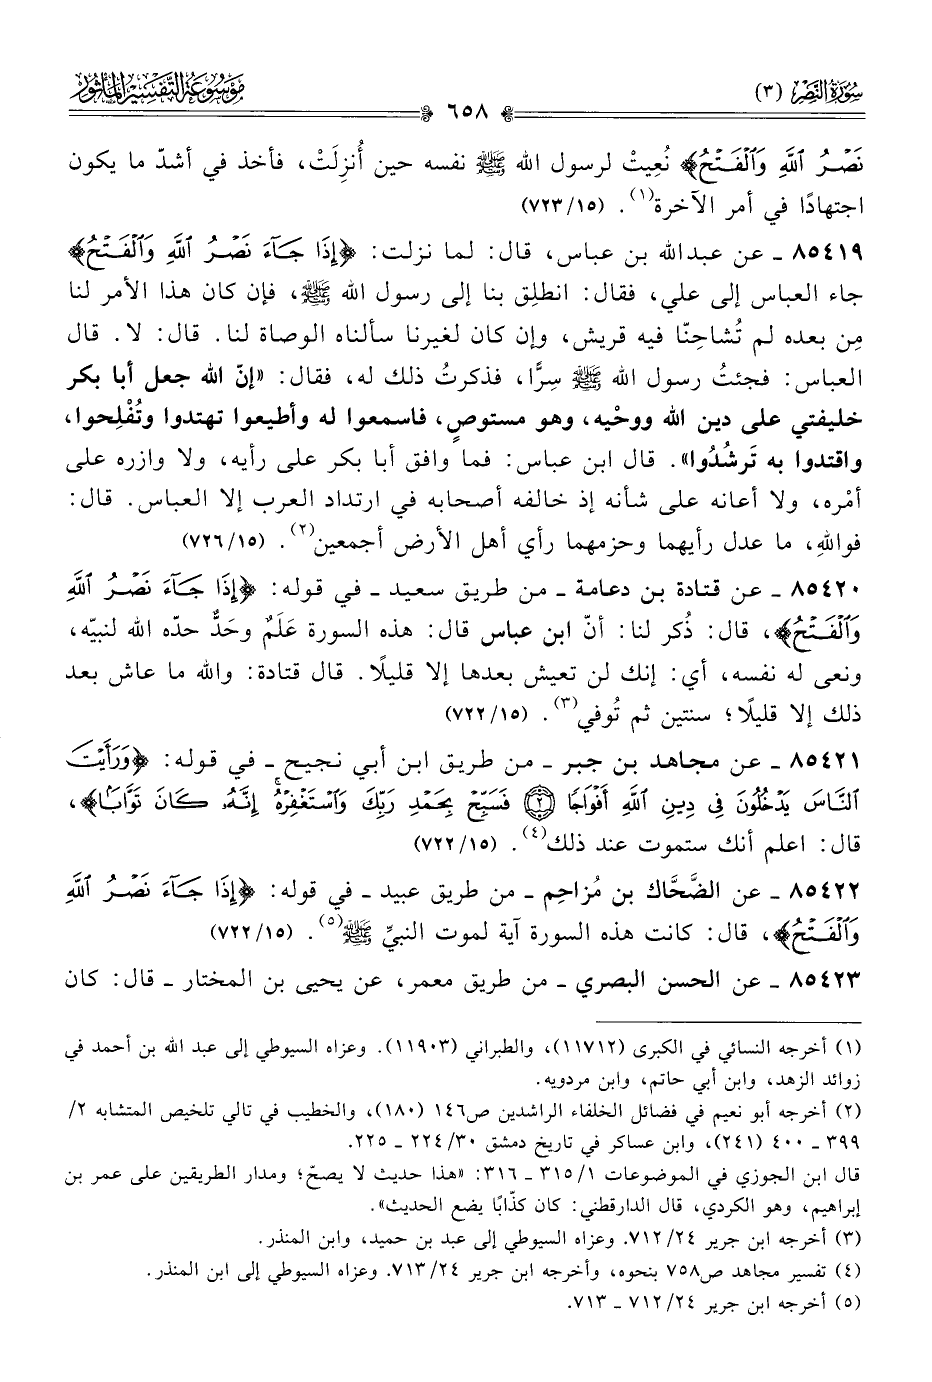 سُورَةُ النَّصْر (٣)
٦٥٨
مَوْسُوعَةُ التَّفْسِيرِ المَأْثُور
نَصْرُ اللَّهِ وَالْفَتْحُ﴾ نُعِيتْ لرسول الله ﷺ نفسه حين أُنزِلَتْ، فأخذ في أشدّ ما يكون
اجتهادًا في أمر الآخرة(١). (٧٢٣/١٥)
٨٥٤١٩ ـ عن عبدالله بن عباس، قال: لما نزلت: ﴿إِذَا جَاءَ نَصْرُ اللَّهِ وَالْفَتْحُ﴾
جاء العباس إلى علي، فقال: انطلِق بنا إلى رسول الله ﷺ، فإن كان هذا الأمر لنا
مِن بعده لم تُشاحِنّا فيه قريش، وإن كان لغيرنا سألناه الوصاة لنا. قال: لا. قال
العباس: فجئتُ رسول الله ﷺ سِرًّا، فذكرتُ ذلك له، فقال: «إنّ الله جعل أبا بكر
خليفتي على دين الله ووحْيه، وهو مستوصٍ، فاسمعوا له وأطيعوا تهتدوا وتُفْلِحوا،
واقتدوا به تَرشُدُوا». قال ابن عباس: فما وافق أبا بكر على رأيه، ولا وازره على
أمْره، ولا أعانه على شأنه إذ خالفه أصحابه في ارتداد العرب إلا العباس. قال:
فواللهِ، ما عدل رأيهما وحزمهما رأي أهل الأرض أجمعين(٢). (٧٢٦/١٥)
٨٥٤٢٠ ـ عن قتادة بن دعامة ـ من طريق سعيد ـ في قوله: ﴿إِذَا جَاءَ نَصْرُ اللَّهِ
وَالْفَتْحُ﴾، قال: ذُكر لنا: أنّ ابن عباس قال: هذه السورة عَلَمٌ وحَدٌّ حدّه الله لنبيّه،
ونعى له نفسه، أي: إنك لن تعيش بعدها إلا قليلًا. قال قتادة: والله ما عاش بعد
ذلك إلا قليلًا؛ سنتين ثم تُوفي(٣). (٧٢٢/١٥)
٨٥٤٢١ ـ عن مجاهد بن جبر ـ من طريق ابن أبي نجيح ـ في قوله: ﴿وَرَأَيْتَ
النَّاسَ يَدْخُلُونَ فِي دِينِ اللَّهِ أَفْوَاجًا ۝٢ فَسَبِّحْ بِحَمْدِ رَبِّكَ وَاسْتَغْفِرْهُ ۚ إِنَّهُ كَانَ تَوَّابًا﴾،
قال: اعلم أنك ستموت عند ذلك(٤). (٧٢٢/١٥)
٨٥٤٢٢ ـ عن الضَّحَّاك بن مُزاحِم ـ من طريق عبيد ـ في قوله: ﴿إِذَا جَاءَ نَصْرُ اللَّهِ
وَالْفَتْحُ﴾، قال: كانت هذه السورة آية لموت النبيِّ ﷺ(٥). (٧٢٢/١٥)
٨٥٤٢٣ ـ عن الحسن البصري ـ من طريق معمر، عن يحيى بن المختار ـ قال: كان
(١) أخرجه النسائي في الكبرى (١١٧١٢)، والطبراني (١١٩٠٣). وعزاه السيوطي إلى عبد الله بن أحمد في
زوائد الزهد، وابن أبي حاتم، وابن مردويه.
(٢) أخرجه أبو نعيم في فضائل الخلفاء الراشدين ص١٤٦ (١٨٠)، والخطيب في تالي تلخيص المتشابه ٢/
٣٩٩ ـ ٤٠٠ (٢٤١)، وابن عساكر في تاريخ دمشق ٣٠/ ٢٢٤ ـ ٢٢٥.
قال ابن الجوزي في الموضوعات ١/ ٣١٥ ـ ٣١٦: «هذا حديث لا يصحّ؛ ومدار الطريقين على عمر بن
إبراهيم، وهو الكردي، قال الدارقطني: كان كذّابًا يضع الحديث».
(٣) أخرجه ابن جرير ٢٤/ ٧١٢. وعزاه السيوطي إلى عبد بن حميد، وابن المنذر.
(٤) تفسير مجاهد ص٧٥٨ بنحوه، وأخرجه ابن جرير ٢٤/ ٧١٣. وعزاه السيوطي إلى ابن المنذر.
(٥) أخرجه ابن جرير ٢٤/ ٧١٢ ـ ٧١٣.